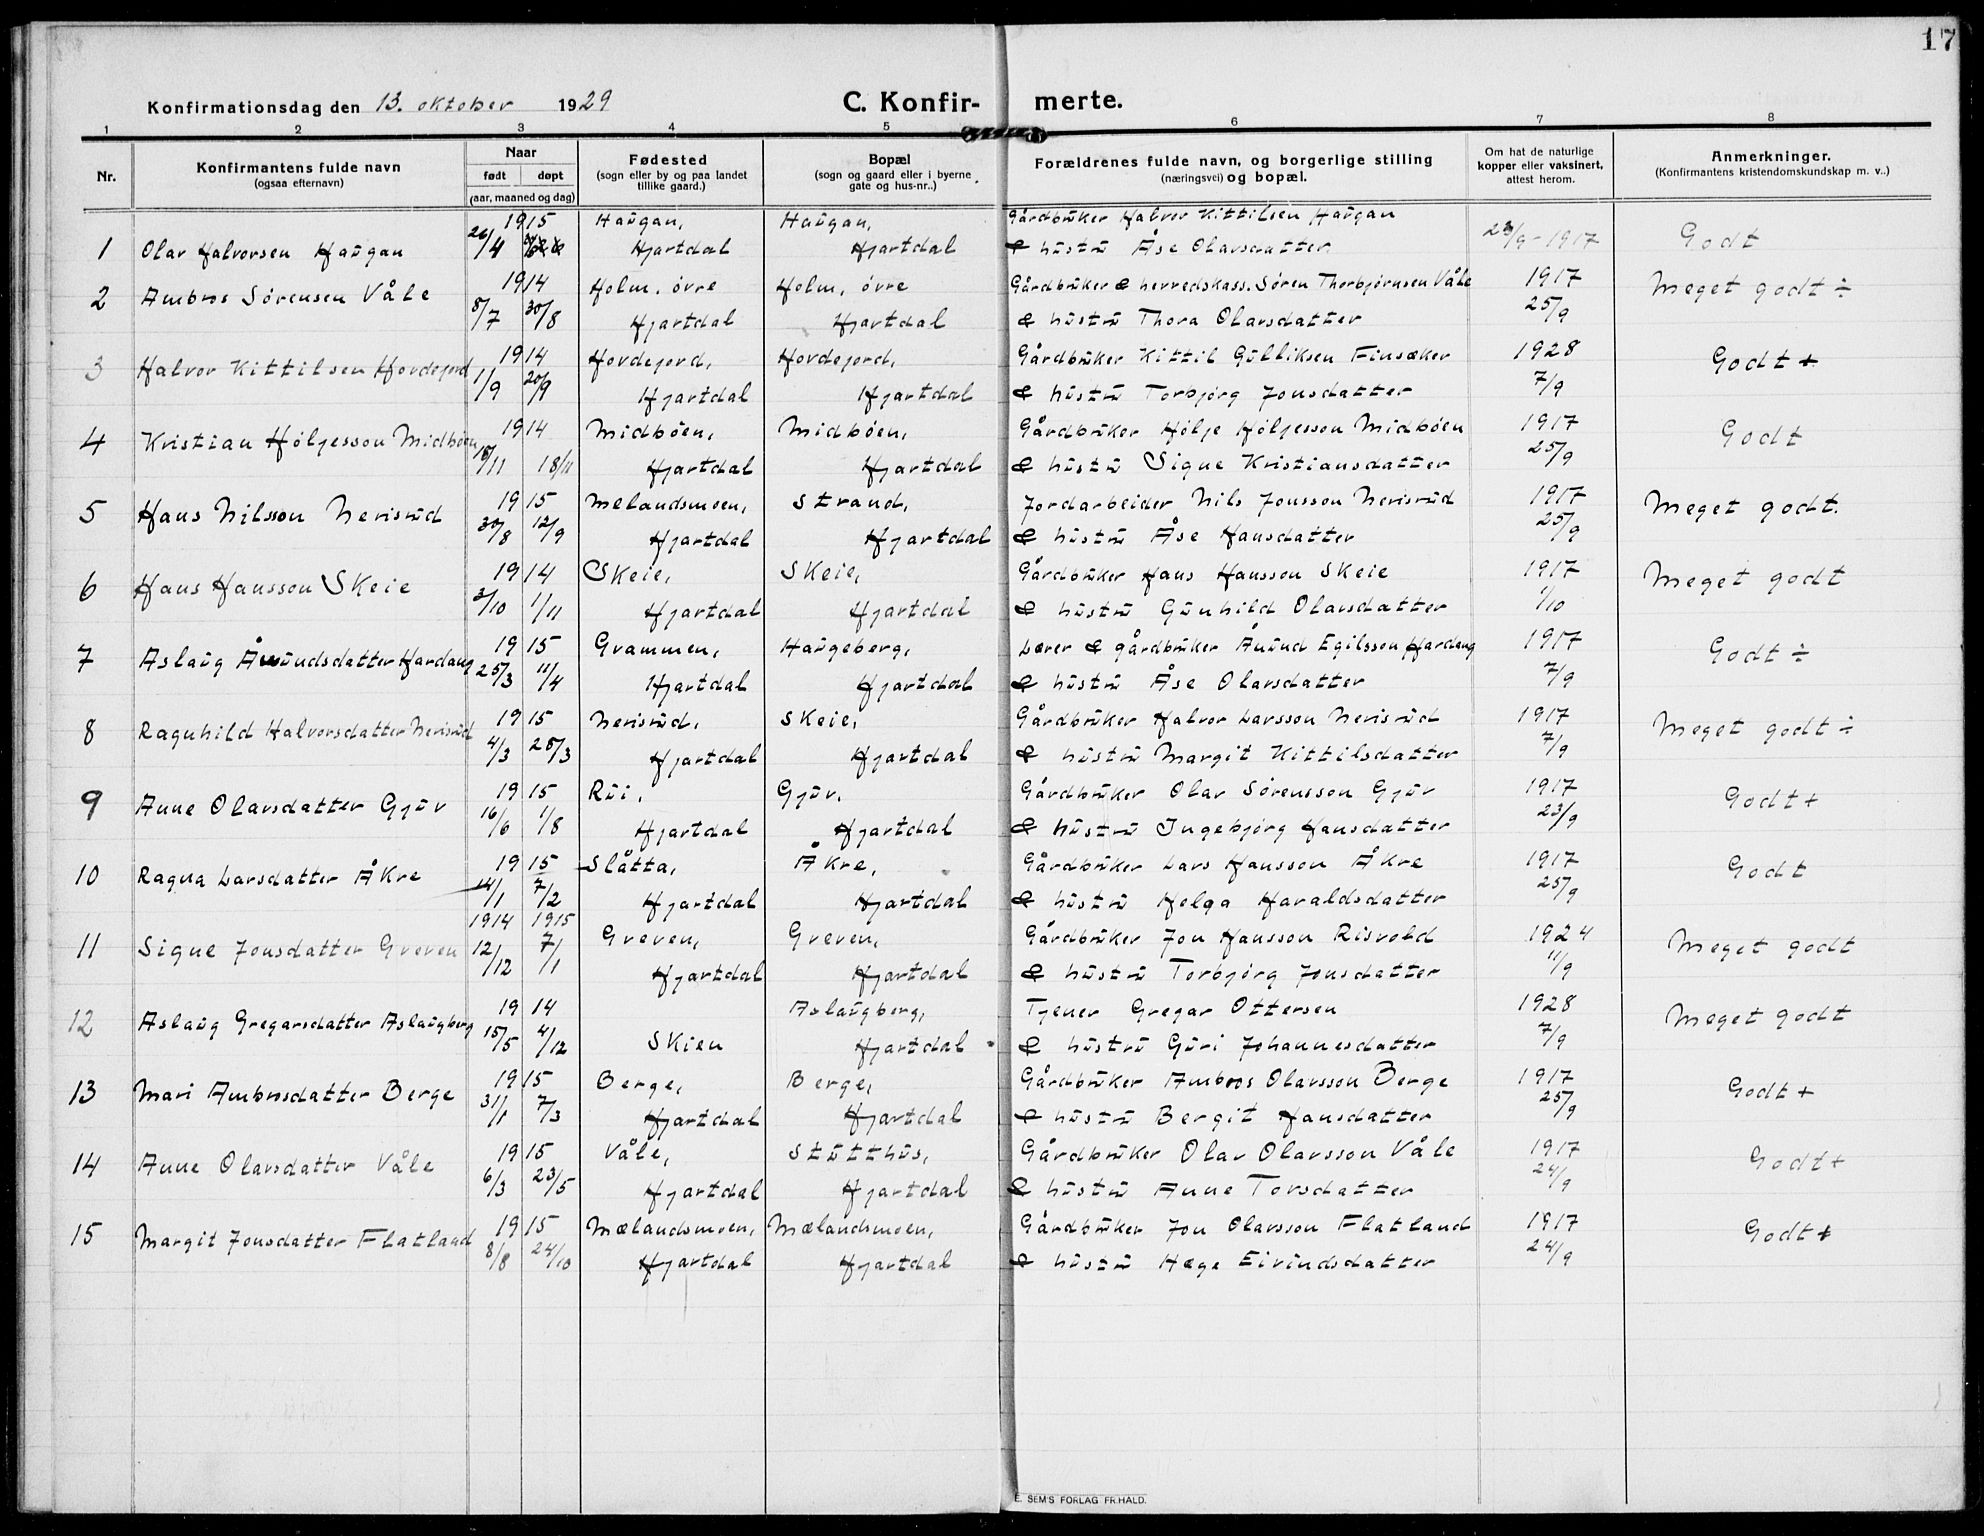 17
Konfirmationsdag den 13. oktober 1929 C. Konfir- merte.
1 2 3 4 5 6 7 8
Nr. Konfirmantens fulde navn (ogsaa efternavn) Naar født døpt (aar, maaned og dag) Fødested (sogn eller by og paa landet tillike gaard.) Bopæl (sogn og gaard eller i byerne gate og hus-nr..) Forældrenes fulde navn, og borgerlige stilling (næringsvei) og bopæl. Om hat de naturlige kopper eller vaksinert, attest herom. Anmerkninger. (Konfirmantens kristendomskundskap m. v..)
1915 Haugan, Haugan, Gårdbruker Halvor Kittilsen Haugan
1 Olav Halvorsen Haugan 26/4 Hjartdal Hjartdal & hustru Åse Olavsdatter 23/9-1917 Godt
1914 Holm, øvre Holm, øvre Gårdbruker & herredskass. Søren Thorbjørnsen Våle 1917
2 Ambros Sørensen Våle 8/7 30/8 Hjartdal Hjartdal & hustru Thora Olavsdatter 25/9 Meget godt ÷
1914 Hovdejord, Hovdejord, Gårdbruker Kittil Gulliksen Finsæker 1928
3 Halvor Kittilsen Hovdejord 1/9 20/9 Hjartdal Hjartdal & hustru Torbjørg Jonsdatter 7/9 Godt +
1914 Midbøen, Midbøen, Gårdbruker Hølje Høljesson Midbøen 1917
4 Kristian Høljesson Midbøen 18/11 Hjartdal Hjartdal & hustru Signe Kristiansdatter 25/9 Godt
1915 Melandsmoen, Strand, Jordarbeider Nils Jonsson Nerisrud 1917
5 Hans Nilsson Nerisrud 30/8 12/9 Hjartdal Hjartdal & hustru Åse Hansdatter 25/9 Meget godt.
1914 Skeie, Skeie, Gårdbruker Hans Hansson Skeie 1917
6 Hans Hansson Skeie 3/10 1/11 Hjartdal Hjartdal & hustru Gunhild Olavsdatter 1/10 Meget godt
1915 Gvammen, Haugeberg, Lærer & gårdbruker Åmund Egilsson Hardang 1917
7 Aslaug Åmundsdatter Hardang 25/3 11/4 Hjartdal Hjartdal & hustru Åse Olavsdatter 7/9 Godt ÷
1915 Nerisrud, Skeie, Gårdbruker Halvor Larsson Nerisrud 1917
8 Ragnhild Halvorsdatter Nerisrud 4/3 25/3 Hjartdal Hjartdal & hustru Margit Kittilsdatter 7/9 Meget godt ÷
1915 Rui, Gjuv, Gårdbruker Olav Sørensson Gjuv 1917
9 Anne Olavsdatter Gjuv 16/6 1/8 Hjartdal Hjartdal & hustru Ingebjørg Hansdatter 23/9 Godt +
1915 Slåtta, Åkre, Gårdbruker Lars Hansson Åkre 1917
10 Ragna Larsdatter Åkre 14/1 7/2 Hjartdal Hjartdal & hustru Helga Haraldsdatter 25/9 Godt
1914 1915 Greven, Greven, Gårdbruker Jon Hansson Risvold 1924
11 Signe Jonsdatter Greven 12/12 7/1 Hjartdal Hjartdal & hustru Torbjørg Jonsdatter 11/9 Meget godt
1914 Aslaugberg, Tjener Gregar Ottersen 1928
12 Aslaug Gregarsdatter Aslaugberg 15/5 4/12 Skien Hjartdal & hustru Guri Johannesdatter 7/9 Meget godt
1915 Berge, Berge, Gårdbruker Ambros Olavsson Berge 1917
13 Mari Ambrosdatter Berge 31/1 7/3 Hjartdal Hjartdal & hustru Bergit Hansdatter 25/9 Godt +
1915 Våle, Stutthus, Gårdbruker Olav Olavsson Våle 1917
14 Anne Olavsdatter Våle 6/3 23/5 Hjartdal Hjartdal & hustru Anne Torsdatter 24/9 Godt +
1915 Mælandsmoen, Mælandsmoen, Gårdbruker Jon Olavsson Flatland 1917
15 Margit Jonsdatter Flatland 8/8 24/10 Hjartdal Hjartdal & hustru Hæge Eivindsdatter 24/9 Godt +
E. SEM'S FORLAG FR.HALD.